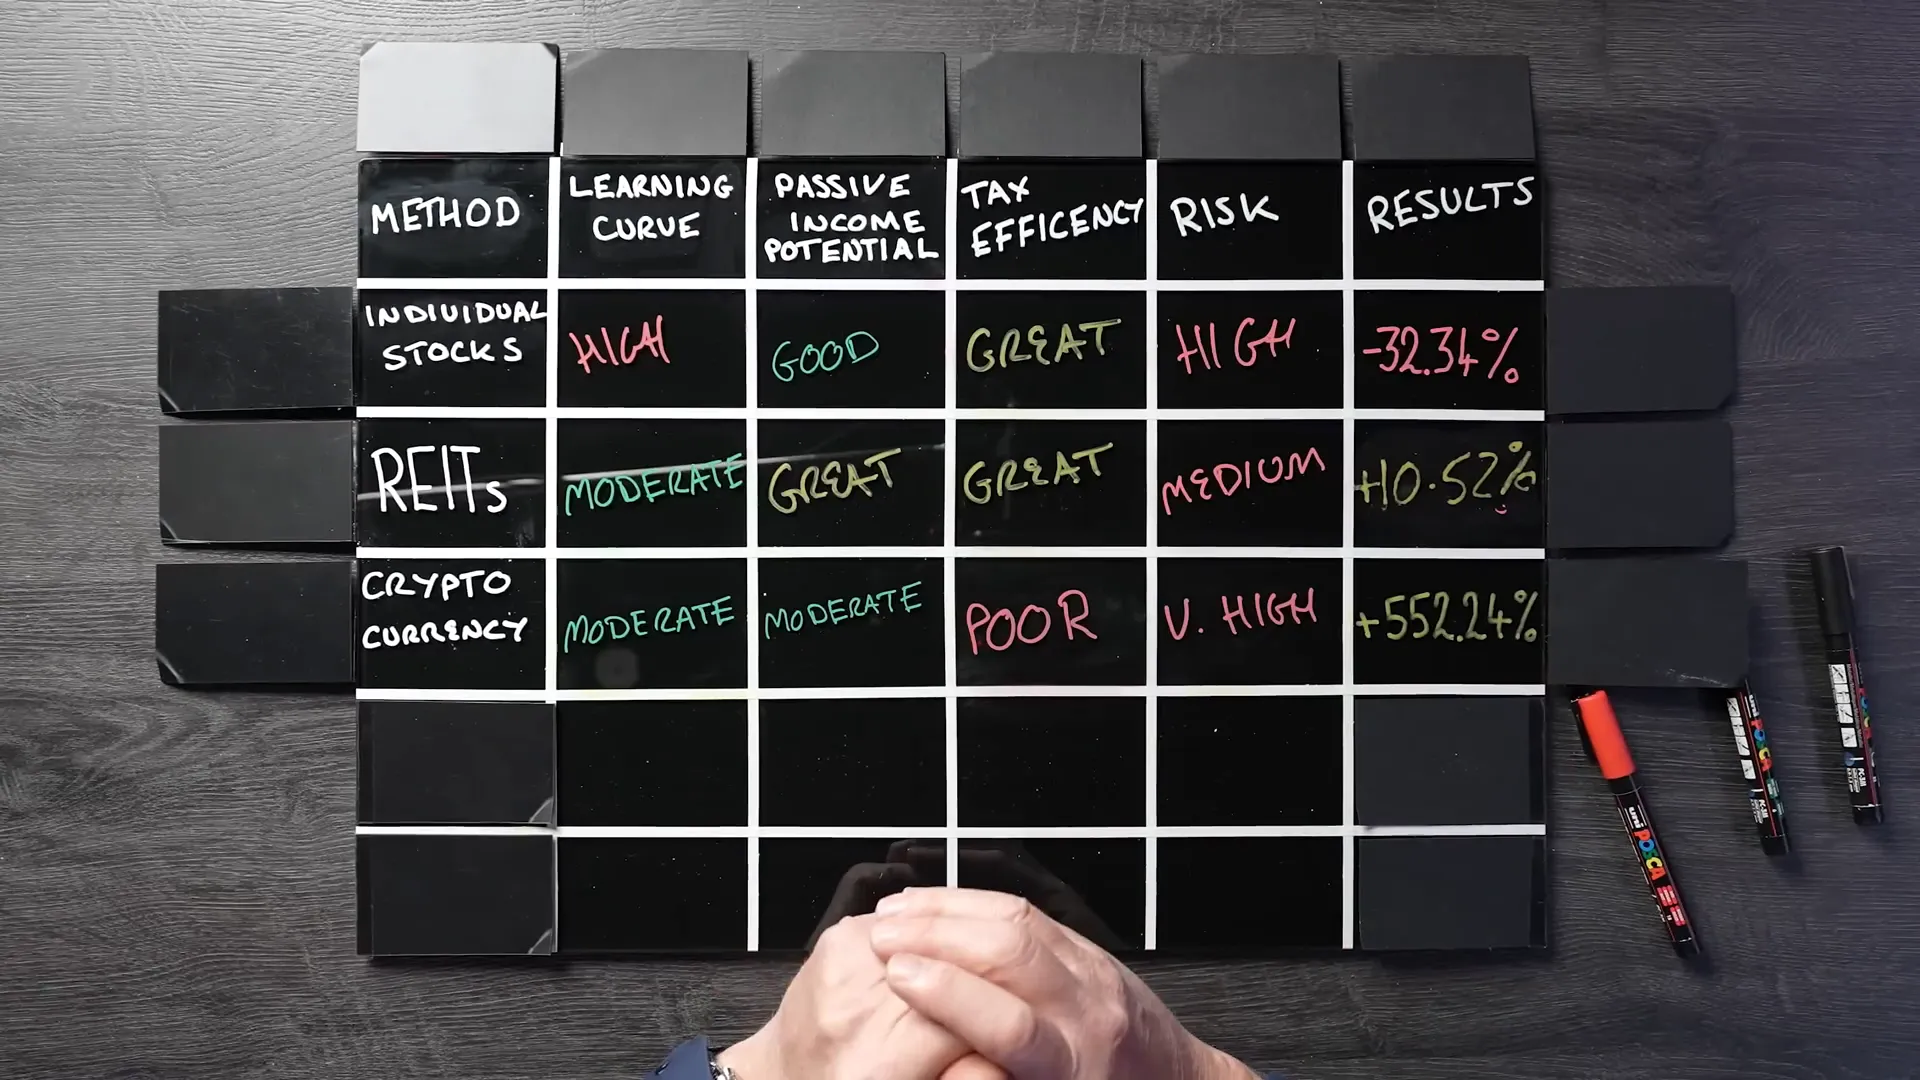 METHOD
LEARNING
CURVE
PASSIVE
INCOME
POTENTIAL
TAX
EFFICENCY
RISK
RESULTS
INDIVIDUAL
STOCKS
HIGH
GOOD
GREAT
HIGH
-32.34%
REITs
MODERATE
GREAT
GREAT
MEDIUM
+10.52%
CRYPTO
CURRENCY
MODERATE
MODERATE
POOR
V. HIGH
+552.24%
POSCA
POSCA